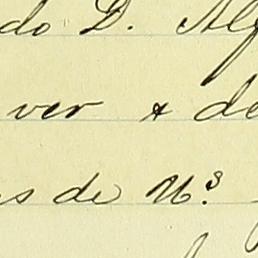 do D. Alf
ver & de
s de N.s